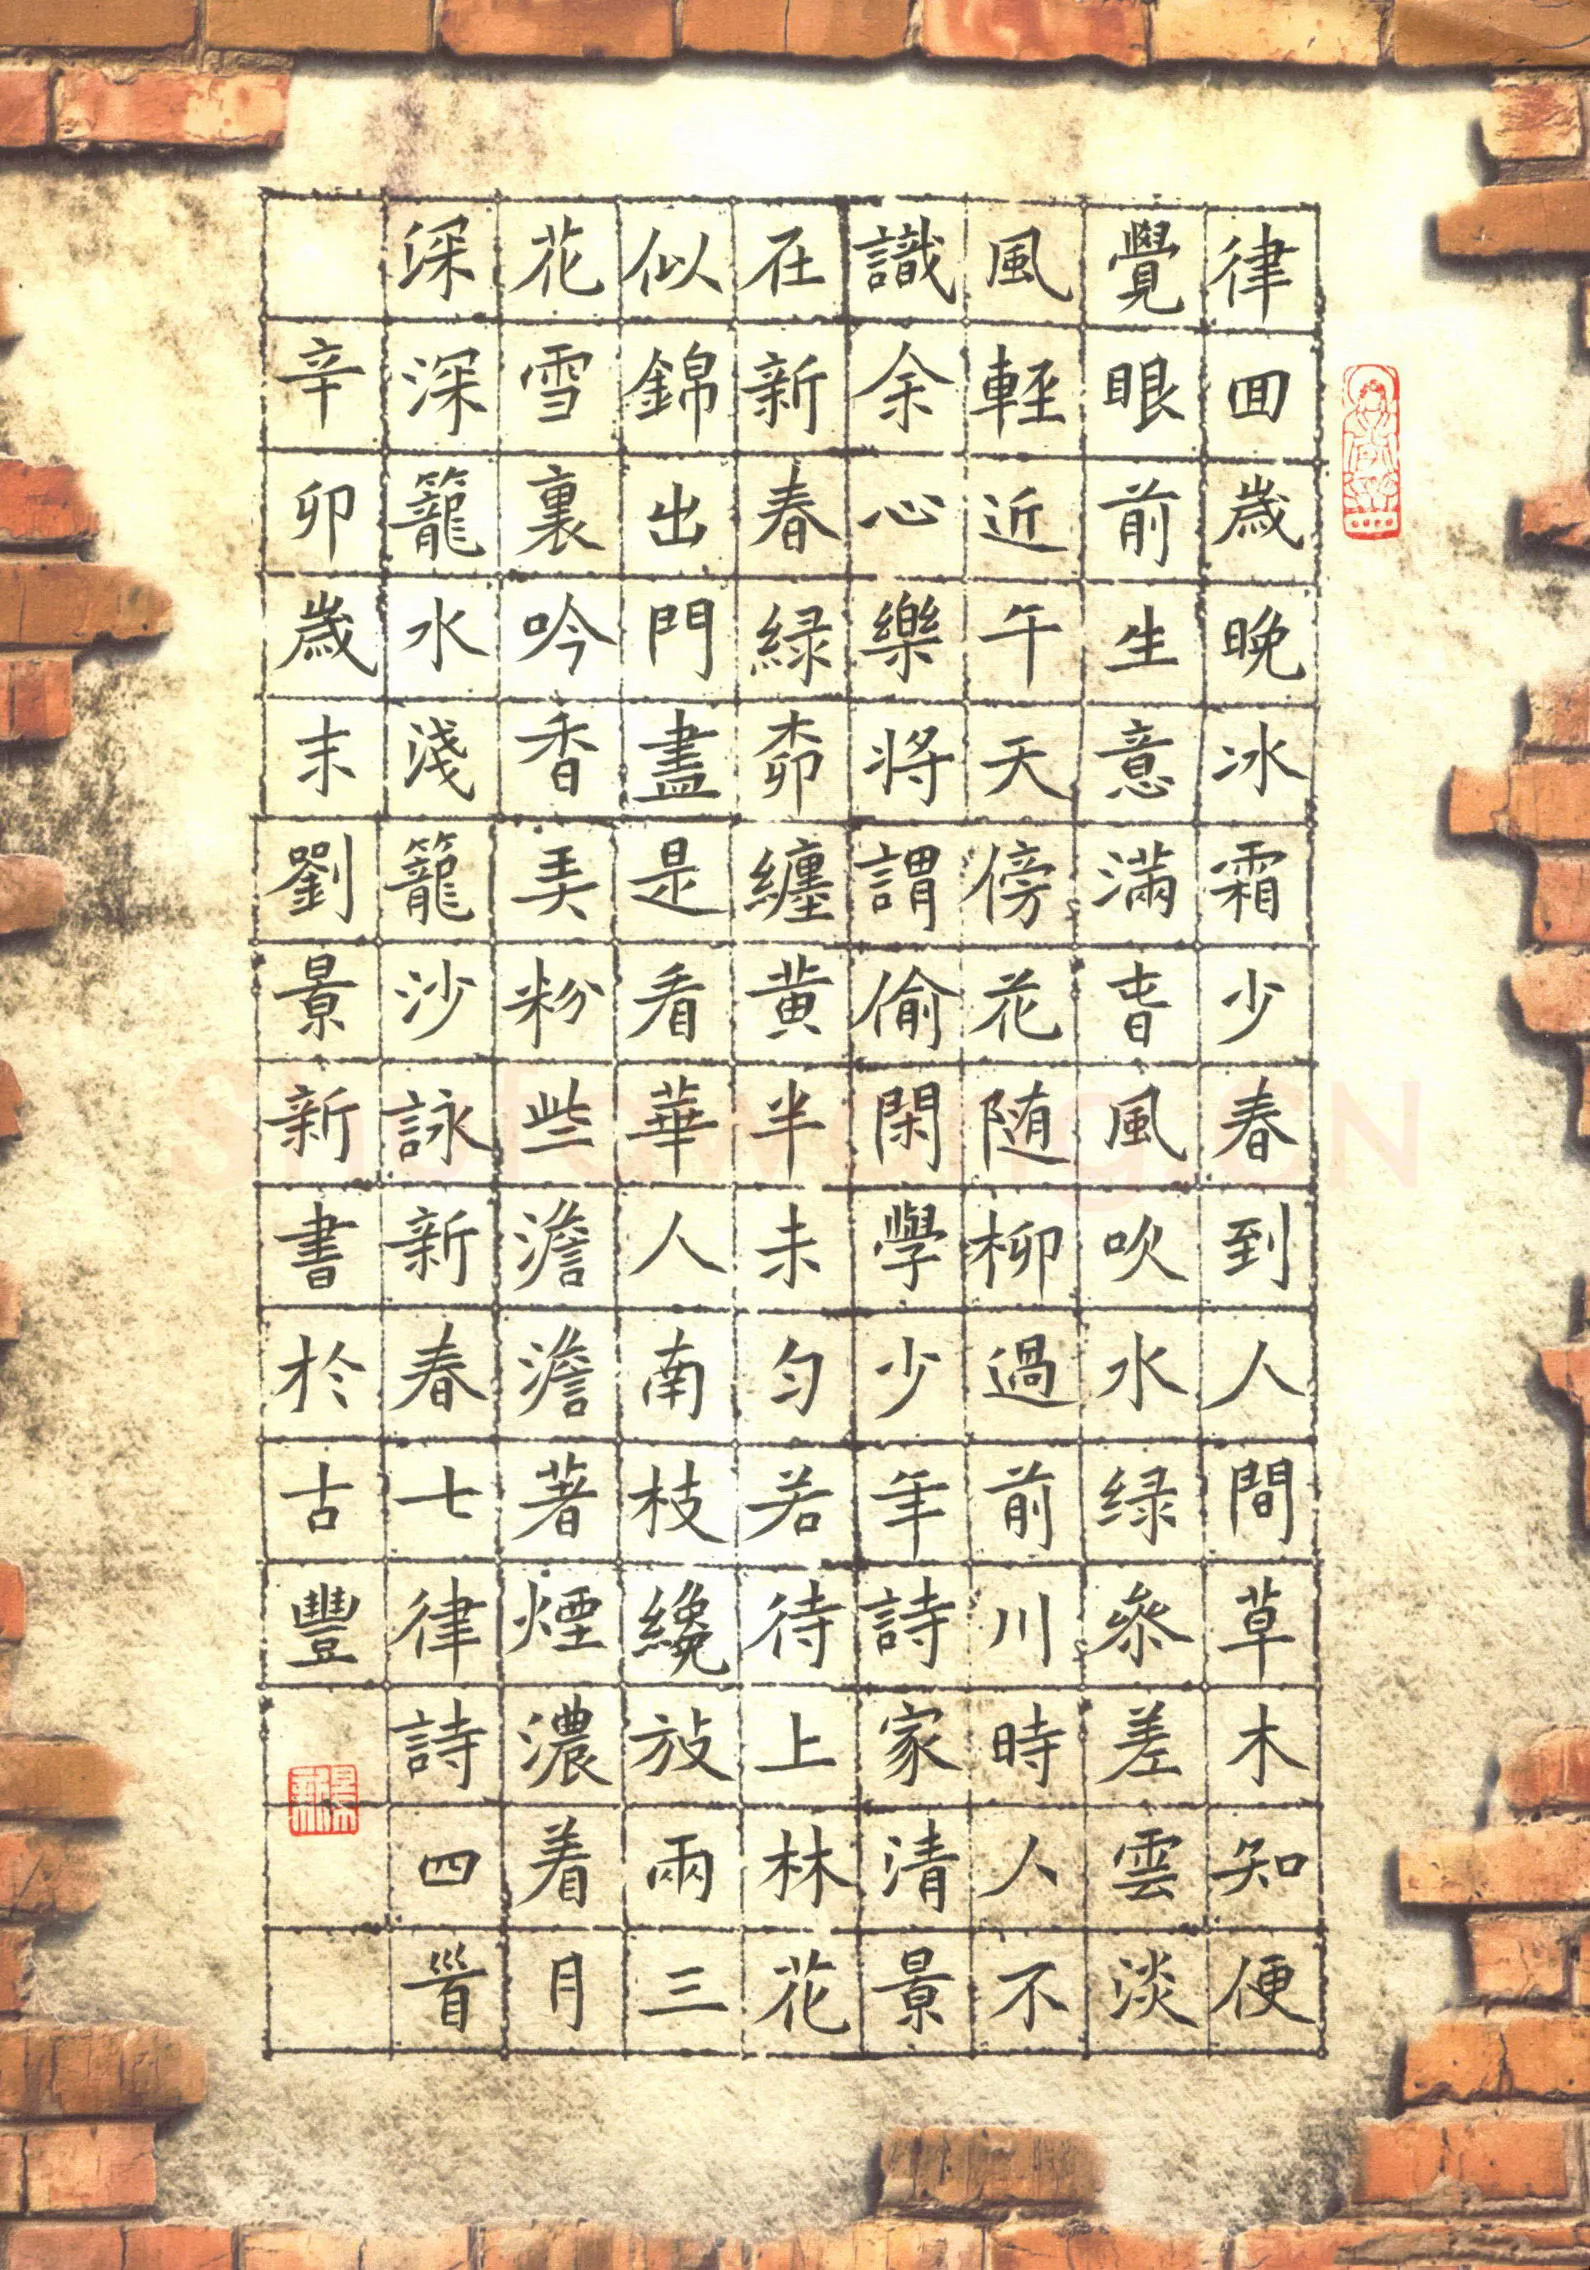 律回歲晚冰霜少春到人間草木知便
覺眼前生意滿春風吹水绿參差雲淡
風輕近午天傍花随柳過前川時人不
識余心樂将謂偷閑學少年詩家清景
在新春緑柳纏黄半未匀若待上林花
似錦出門盡是看華人南枝纔放兩三
花雪裏吟香弄粉些澹澹著煙濃着月
深深籠水淺籠沙詠新春七律詩四首
辛卯歲末劉景新書於古豐